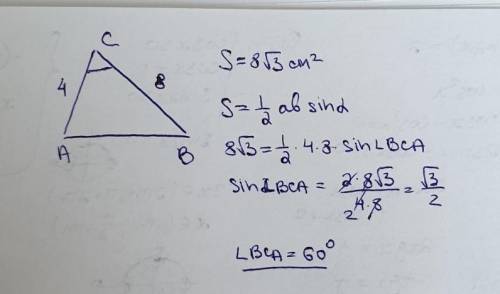 C
4
8
A
B
S=8√3 см²
S=1/2 ab sinα
8√3=1/2·4·8·sin∠BCA
sin∠BCA = 2·8√3/4·8 = √3/2
2
∠BCA=60°